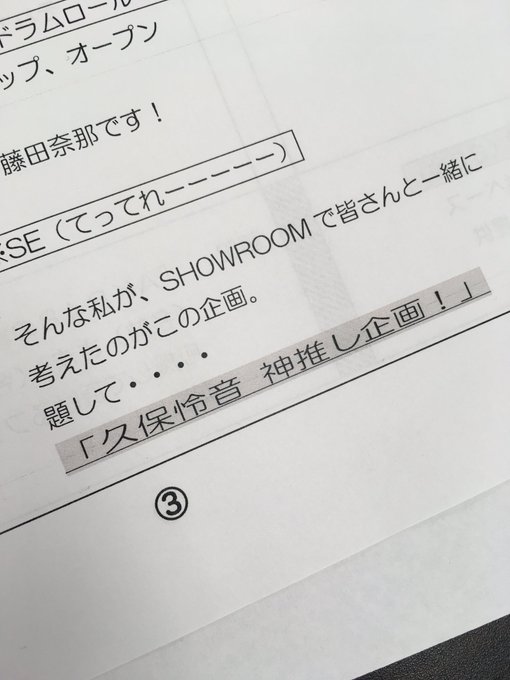 ドラムロール
ップ、オープン
藤田奈那です！
※SE（てってれーーーーー）
そんな私が、SHOWROOMで皆さんと一緒に
考えたのがこの企画。
題して・・・・
「久保怜音 神推し企画！」
③